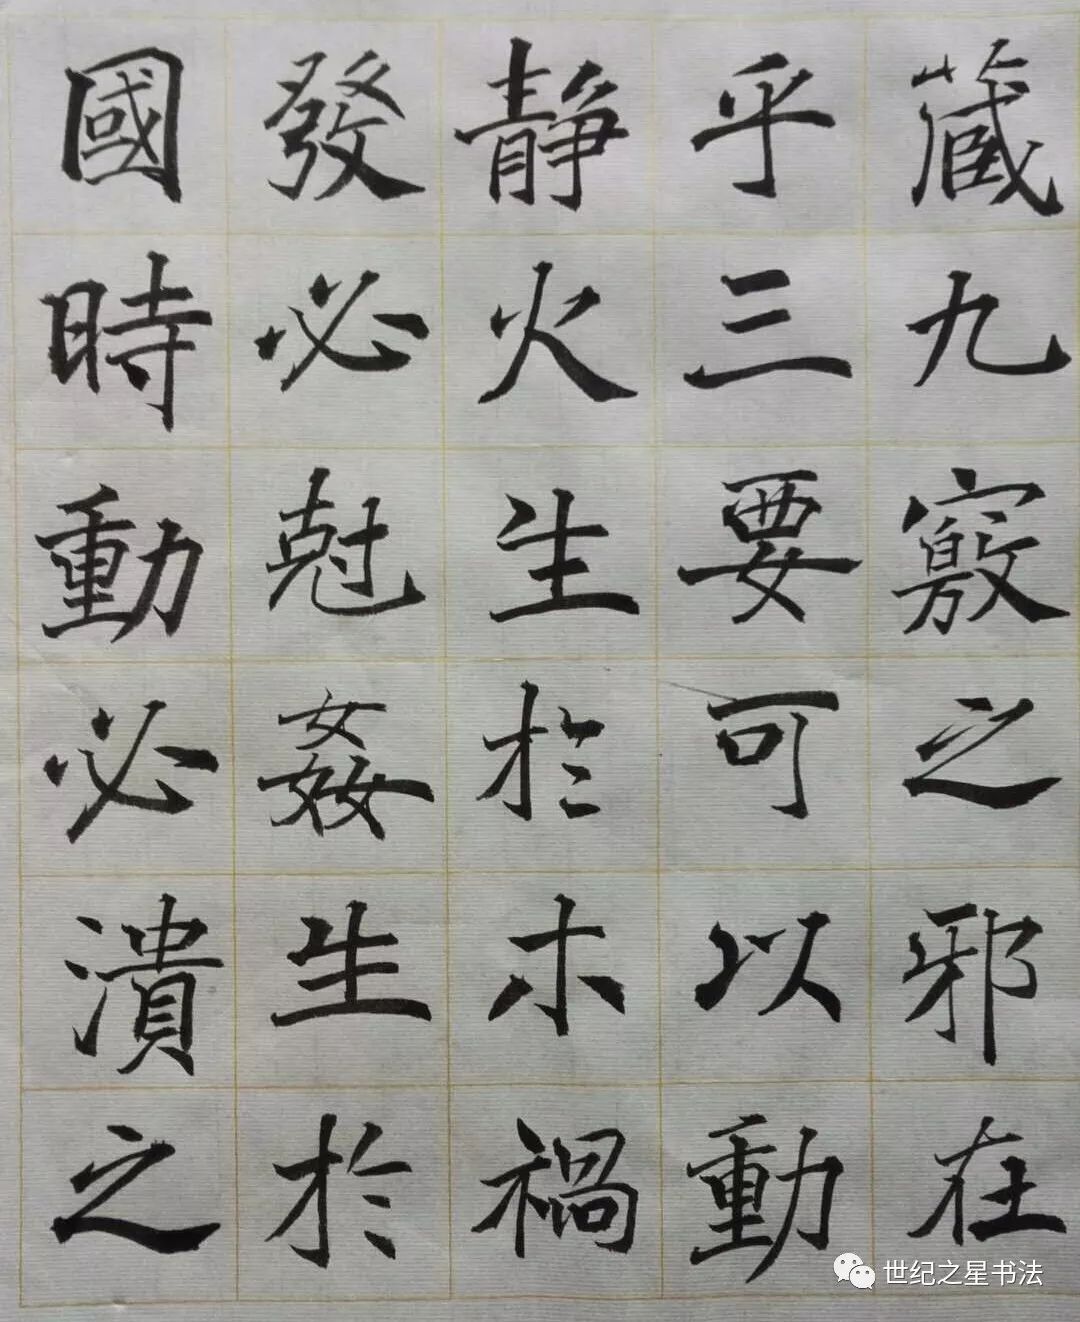 藏九竅之邪在
乎三要可以動
靜火生於木禍
發必尅姦生於
國時動必潰之
世纪之星书法